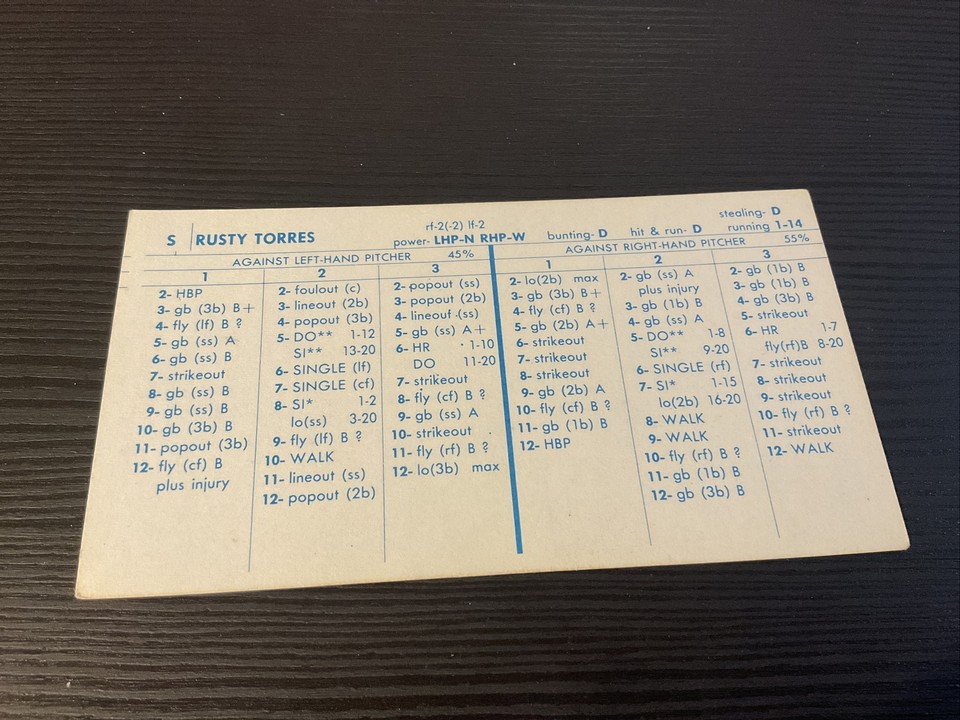 rf-2(-2) lf-2
stealing- D
S RUSTY TORRES
power- LHP-N RHP-W
bunting- D hit & run- D running 1-14
AGAINST LEFT-HAND PITCHER 45%
1
2- HBP
3- gb (3b) B+
4- fly (lf) B ?
5- gb (ss) A
6- gb (ss) B
7- strikeout
8- gb (ss) B
9- gb (ss) B
10- gb (3b) B
11- popout (3b)
12- fly (cf) B
plus injury
2
2- foulout (c)
3- lineout (2b)
4- popout (3b)
5- DO** 1-12
SI** 13-20
6- SINGLE (lf)
7- SINGLE (cf)
8- SI* 1-2
lo(ss) 3-20
9- fly (lf) B ?
10- WALK
11- lineout (ss)
12- popout (2b)
3
2- popout (ss)
3- popout (2b)
4- lineout (ss)
5- gb (ss) A+
6- HR 1-10
DO 11-20
7- strikeout
8- fly (cf) B ?
9- gb (ss) A
10- strikeout
11- fly (rf) B ?
12- lo(3b) max
AGAINST RIGHT-HAND PITCHER 55%
1
2- lo(2b) max
3- gb (3b) B+
4- fly (cf) B ?
5- gb (2b) A+
6- strikeout
7- strikeout
8- strikeout
9- gb (2b) A
10- fly (cf) B ?
11- gb (1b) B
12- HBP
2
2- gb (ss) A
plus injury
3- gb (1b) B
4- gb (ss) A
5- DO** 1-8
SI** 9-20
6- SINGLE (rf)
7- SI* 1-15
lo(2b) 16-20
8- WALK
9- WALK
10- fly (rf) B ?
11- gb (1b) B
12- gb (3b) B
3
2- gb (1b) B
3- gb (1b) B
4- gb (3b) B
5- strikeout
6- HR 1-7
fly(rf)B 8-20
7- strikeout
8- strikeout
9- strikeout
10- fly (rf) B ?
11- strikeout
12- WALK